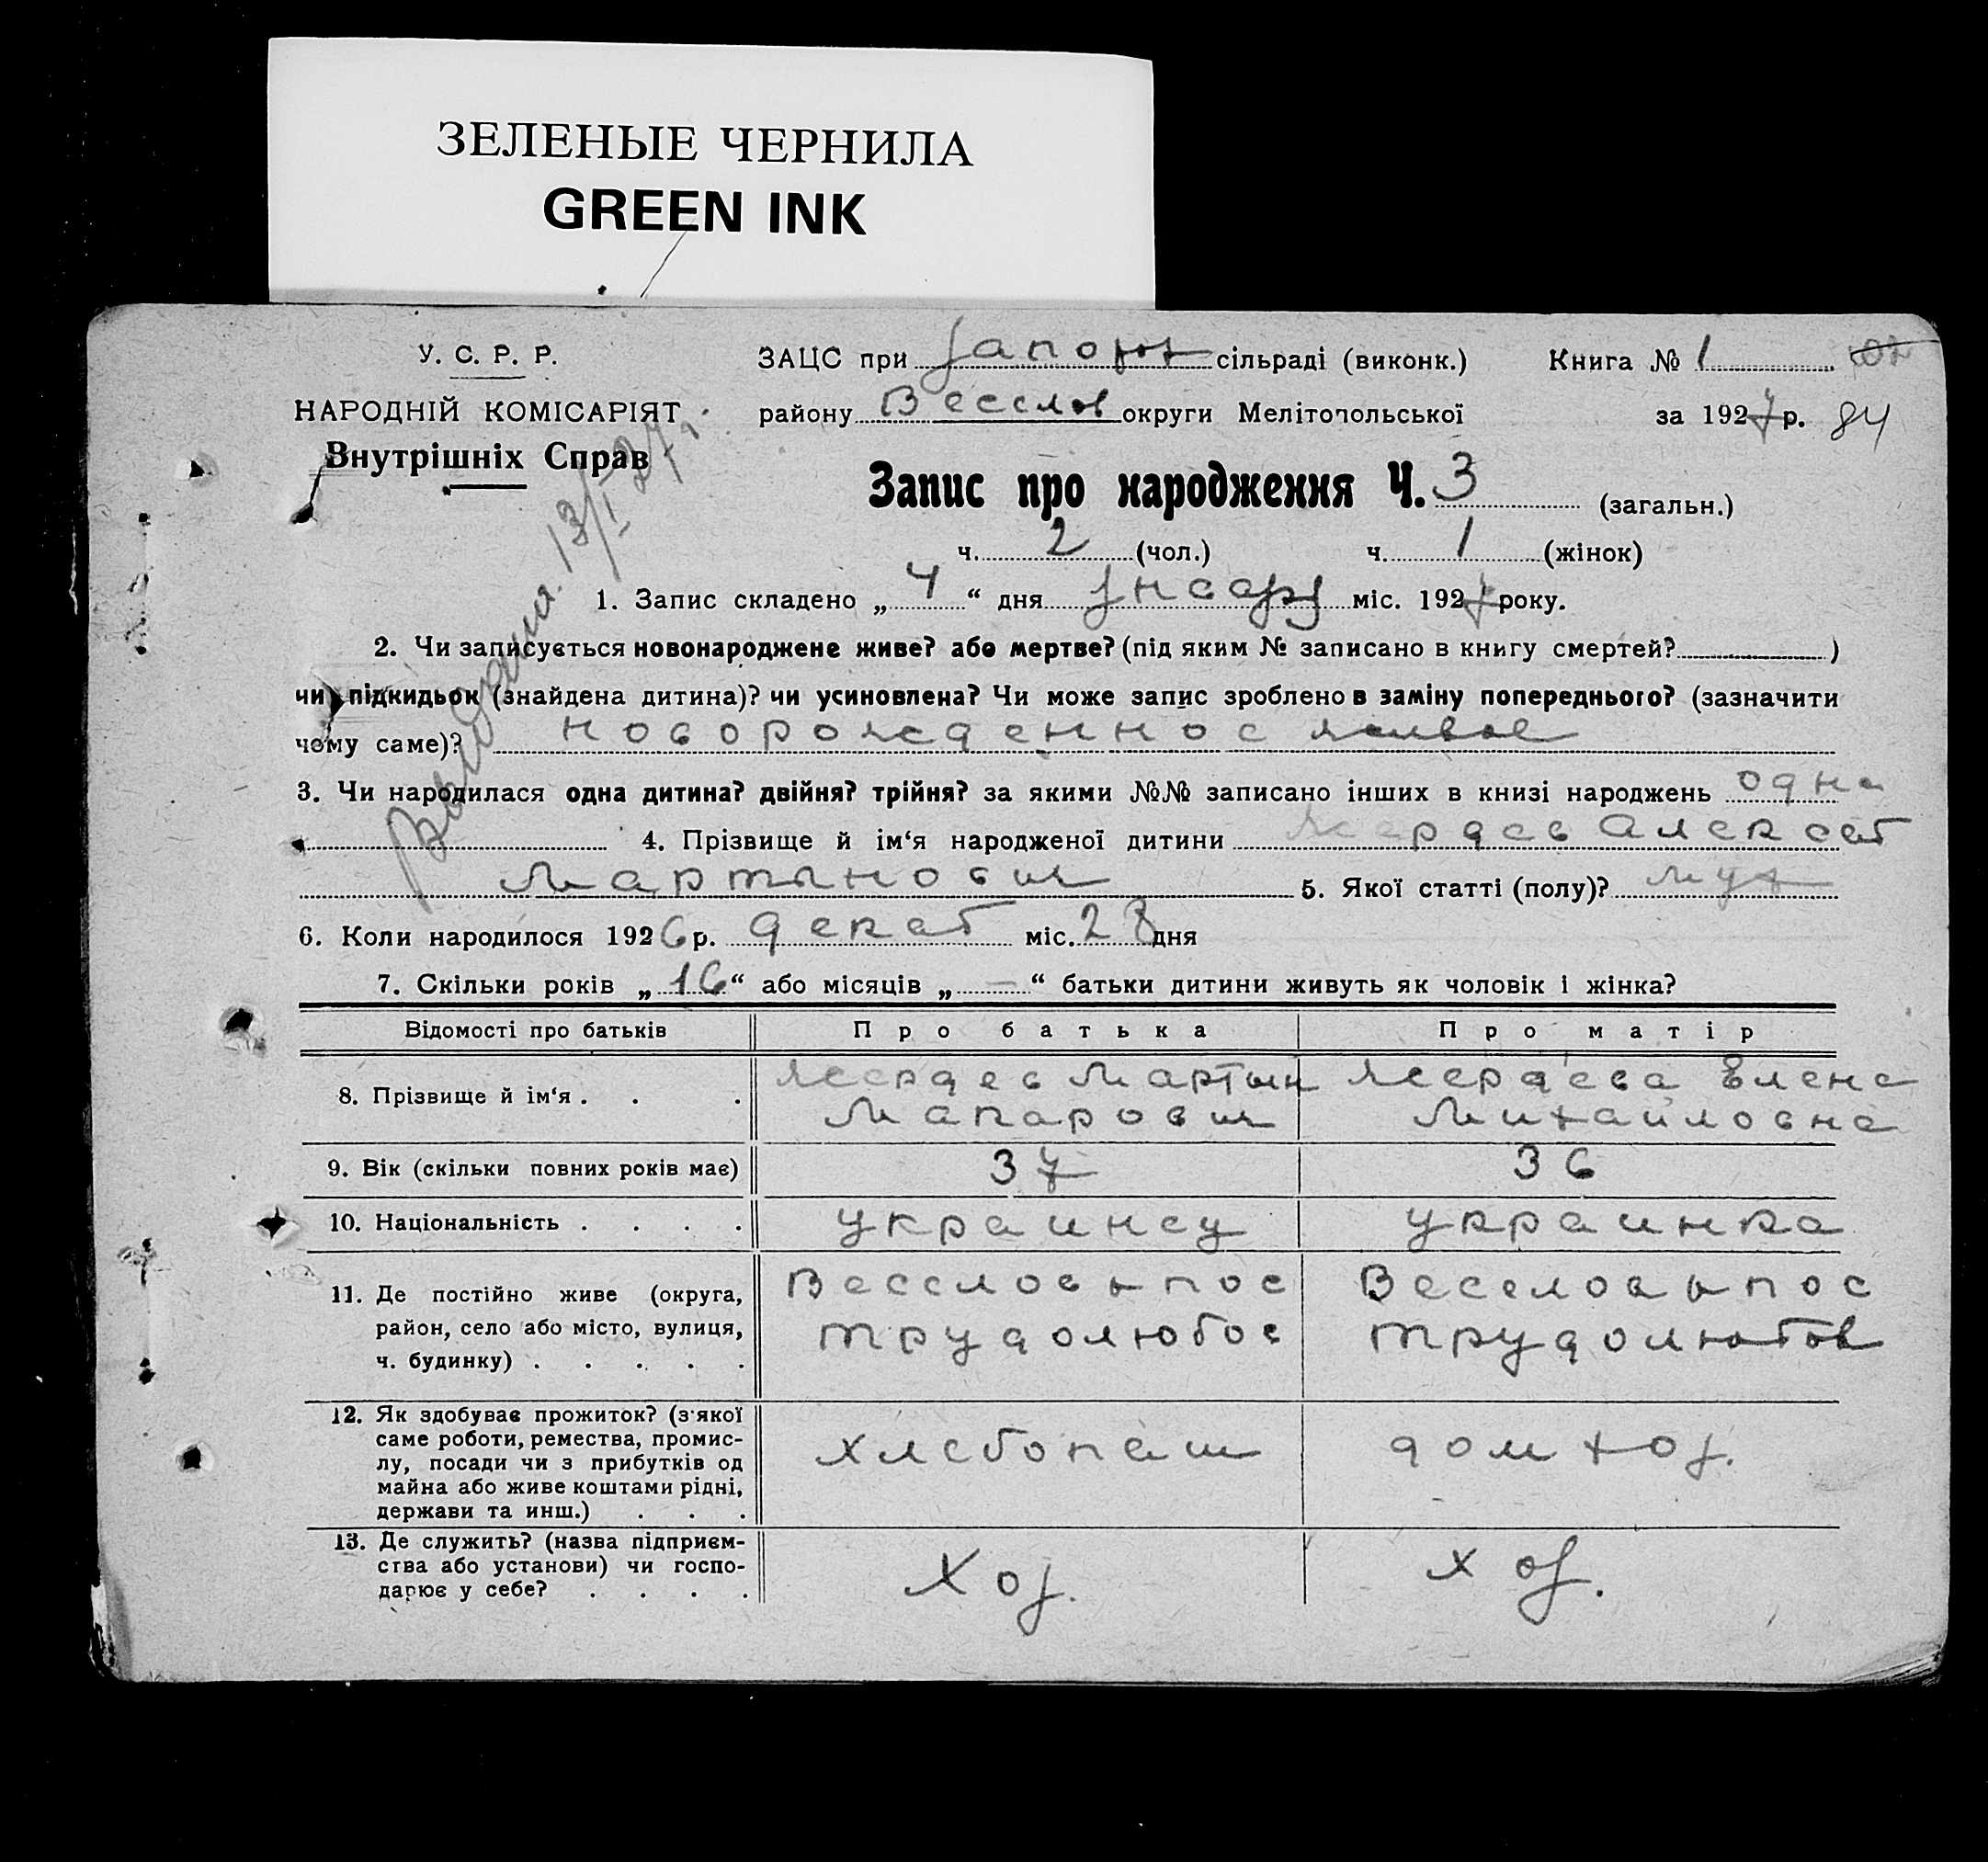 ЗЕЛЕНЫЕ ЧЕРНИЛА
GREEN INK
У. С. Р. Р.
НАРОДНІЙ КОМІСАРІЯТ
Внутрішніх Справ
ЗАЦС при Запорож сільраді (виконк.) Книга № 1
району Веселов округи Мелітопольської за 1927 р. 84
Запис про народження Ч. 3 (загальн.)
ч. 2 (чол.) ч. 1 (жінок)
Выдана 13/I 27
1. Запис складено „ 4 “ дня января міс. 1927 року.
2. Чи записується новонароджене живе? або мертве? (під яким № записано в книгу смертей? )
чи підкидьок (знайдена дитина)? чи усиновлена? Чи може запис зроблено в заміну попереднього? (зазначити
чому саме)? новорожденное живое
3. Чи народилася одна дитина? двійня? трійня? за якими №№ записано інших в книзі народжень одна
4. Прізвище й ім‘я народженої дитини Жердев Алексей
Мартынович 5. Якої статті (полу)? муж
6. Коли народилося 1926 р. декаб міс. 28 дня
7. Скільки років „ 16 “ або місяців „ — “ батьки дитини живуть як чоловік і жінка?
Відомості про батьків Про батька Про матір
8. Прізвище й ім‘я . . . Жердев Мартын Жердева Елена
Макарович Михайловна
9. Вік (скільки повних років має) 37 36
10. Національність . . . . украинец украинка
11. Де постійно живе (округа, Веселов пос Веселов пос
район, село або місто, вулиця, трудолюбов трудолюбов
ч. будинку) . . . . .
12. Як здобуває прожиток? (з якої
саме роботи, ремества, промис-
лу, посади чи з прибутків од хлебопаш дом хоз.
майна або живе коштами рідні,
держави та инш.) . . .
13. Де служить? (назва підприєм-
ства або установи) чи госпо- Хоз. хоз.
дарює у себе? . . . .